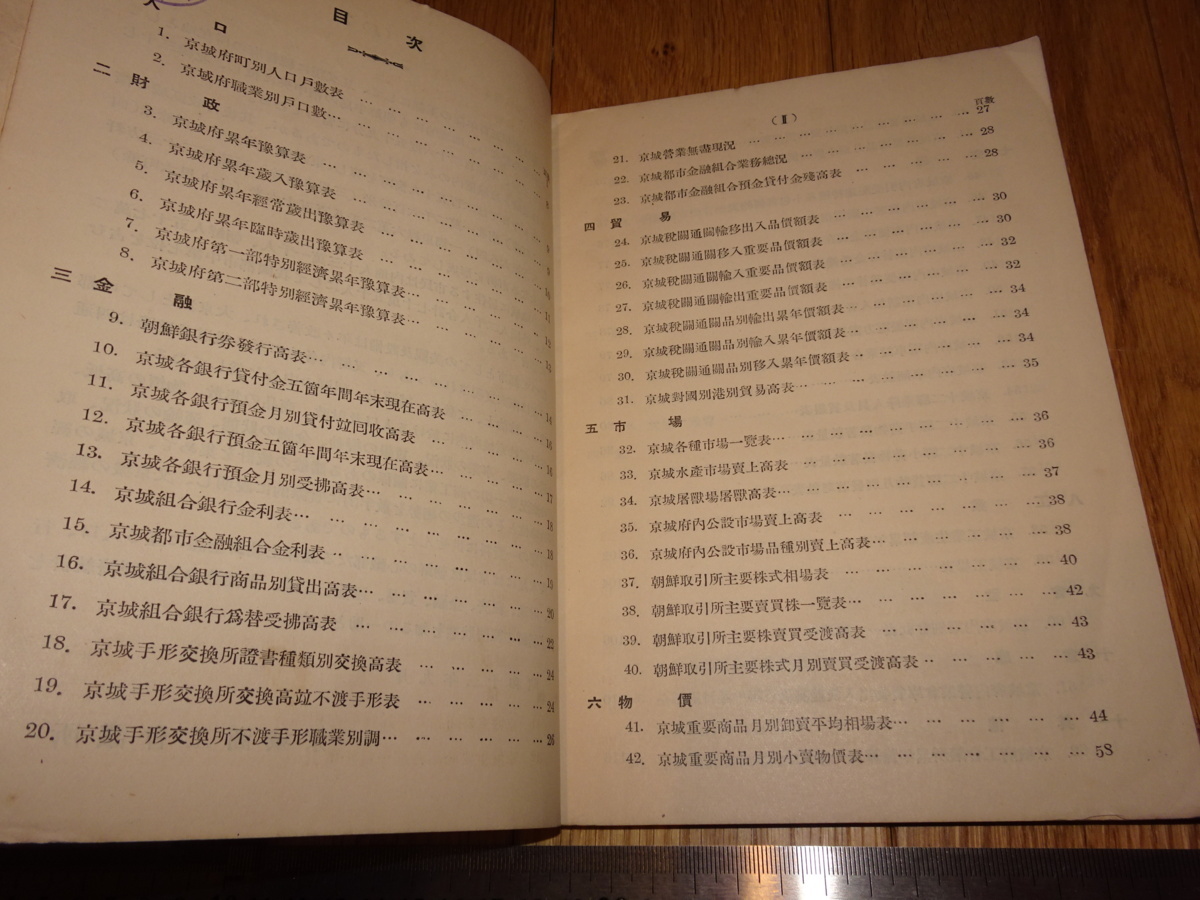 目次
人口
1. 京城府町別人口戶數表
2. 京城府職業別戶口數
二 財政
3. 京城府累年豫算表
4. 京城府累年歲入豫算表
5. 京城府累年經常歲出豫算表
6. 京城府累年臨時歲出豫算表
7. 京城府第一部特別經濟累年豫算表
8. 京城府第二部特別經濟累年豫算表
三 金融
9. 朝鮮銀行券發行高表
10. 京城各銀行貸付金五箇年間年末現在高表 … 14
11. 京城各銀行預金月別貸付竝回收高表
12. 京城各銀行預金五箇年間年末現在高表 … 16
13. 京城各銀行預金月別受拂高表 … 17
14. 京城組合銀行金利表 … 18
15. 京城都市金融組合金利表 … 18
16. 京城組合銀行商品別貸出高表 … 19
17. 京城組合銀行爲替受拂高表 … 20
18. 京城手形交換所證書種類別交換高表 … 24
19. 京城手形交換所交換高竝不渡手形表 … 24
20. 京城手形交換所不渡手形職業別調 … 26
(Ⅱ)
頁數
21. 京城營業無盡現況 … 27
22. 京城都市金融組合業務總況 … 28
23. 京城都市金融組合預金貸付金殘高表 … 28
四 貿易
24. 京城稅關通關輸移出入品價額表 … 30
25. 京城稅關通關移入重要品價額表 … 30
26. 京城稅關通關輸入重要品價額表 … 32
27. 京城稅關通關輸出重要品價額表 … 32
28. 京城稅關通關品別輸出累年價額表 … 34
29. 京城稅關通關品別輸入累年價額表 … 34
30. 京城稅關通關品別移入累年價額表 … 34
31. 京城對國別港別貿易高表 … 35
五 市場
32. 京城各種市場一覽表 … 36
33. 京城水產市場賣上高表 … 36
34. 京城屠獸場屠獸高表 … 37
35. 京城府內公設市場賣上高表 … 38
36. 京城府內公設市場品種別賣上高表 … 38
37. 朝鮮取引所主要株式相場表 … 40
38. 朝鮮取引所主要賣買株一覽表 … 42
39. 朝鮮取引所主要株賣買受渡高表 … 43
40. 朝鮮取引所主要株式月別賣買受渡高表 … 43
六 物價
41. 京城重要商品月別卸賣平均相場表 … 44
42. 京城重要商品月別小賣物價表 … 58